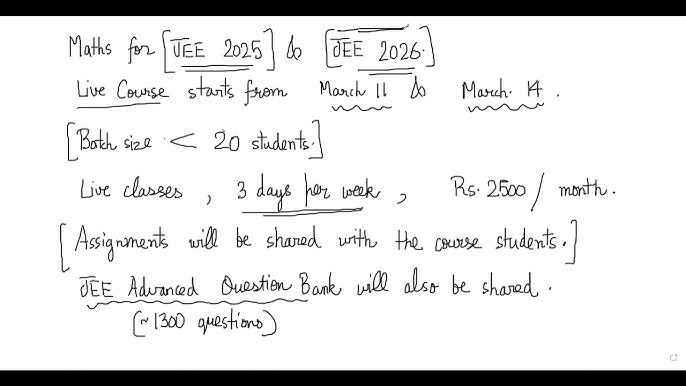 Maths for [JEE 2025] & [JEE 2026.]
Live Course starts from March 11 & March. 14.
[Batch size < 20 students.]
Live classes, 3 days per week, Rs. 2500 / month.
[Assignments will be shared with the course students.]
JEE Advanced Question Bank will also be shared.
(~1300 questions)